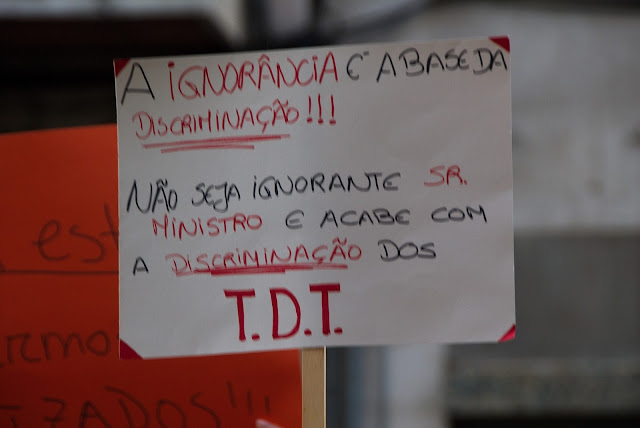 A IGNORÂNCIA É A BASE DA
DISCRIMINAÇÃO!!!
NÃO SEJA IGNORANTE SR.
MINISTRO E ACABE COM
A DISCRIMINAÇÃO DOS
T.D.T.
est